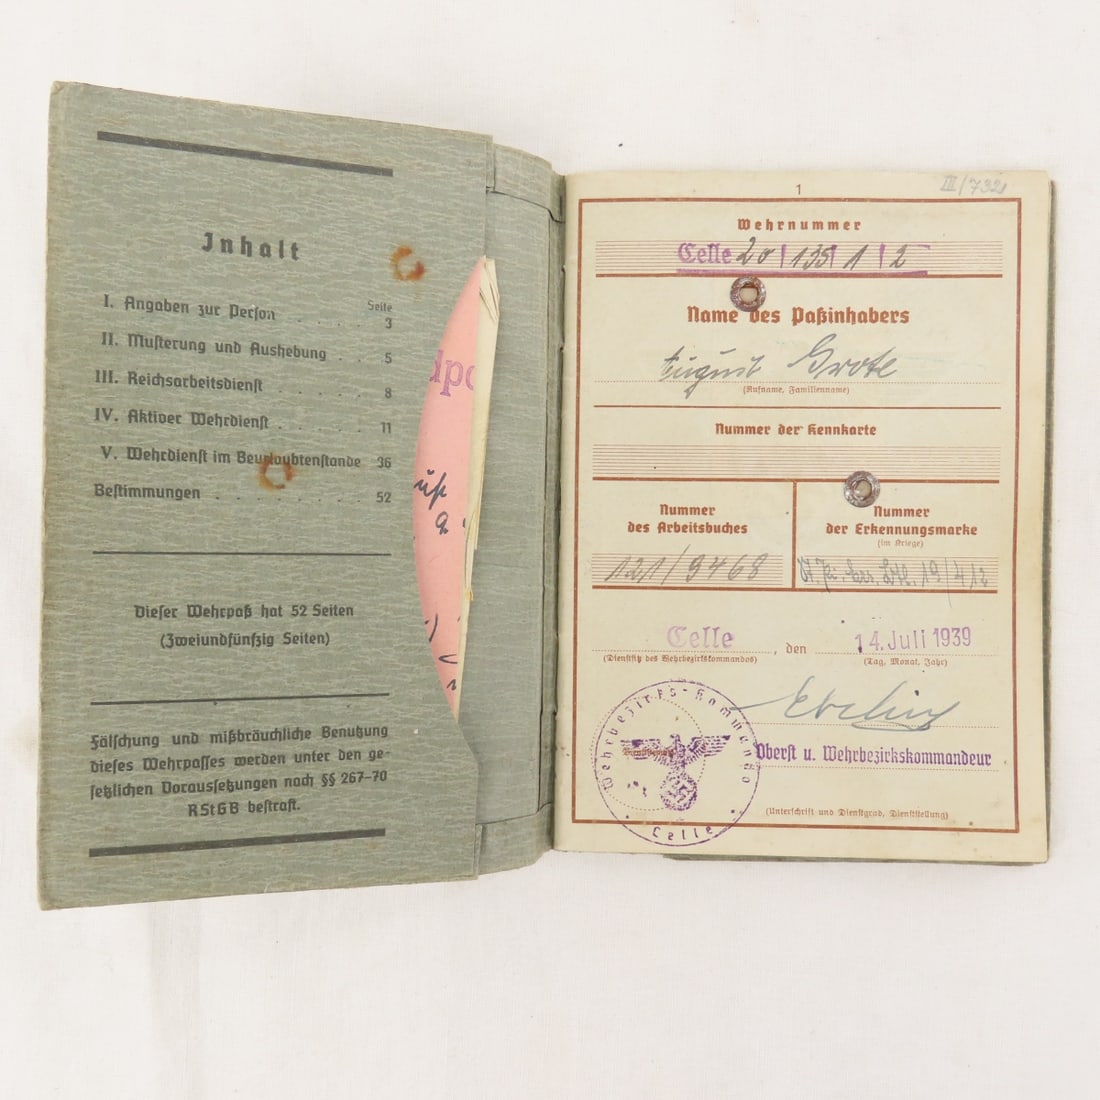 Inhalt
Seite
I. Angaben zur Person . . . . . 3
II. Musterung und Aushebung . . 5
III. Reichsarbeitsdienst . . . . . 8
IV. Aktiver Wehrdienst . . . . . 11
V. Wehrdienst im Beurlaubtenstande 36
Bestimmungen . . . . . . . . 52
Dieser Wehrpaß hat 52 Seiten
(Zweiundfünfzig Seiten)
Fälschung und mißbräuchliche Benutzung
dieses Wehrpasses werden unter den ge-
setzlichen Voraussetzungen nach §§ 267–70
RStGB bestraft.
dpo
1
III/732
Wehrnummer
Celle 20 | 135 | 1 | 2
Name des Paßinhabers
August Grote
(Rufname, Familienname)
Nummer der Kennkarte
Nummer
des Arbeitsbuches
121/9468
Nummer
der Erkennungsmarke
(im Kriege)
19/412
Celle, den 14. Juli 1939
(Dienstsitz des Wehrbezirkskommandos) (Tag, Monat, Jahr)
Oberst u. Wehrbezirkskommandeur
(Unterschrift und Dienstgrad, Dienststellung)
Wehrbezirks-Kommando
Celle